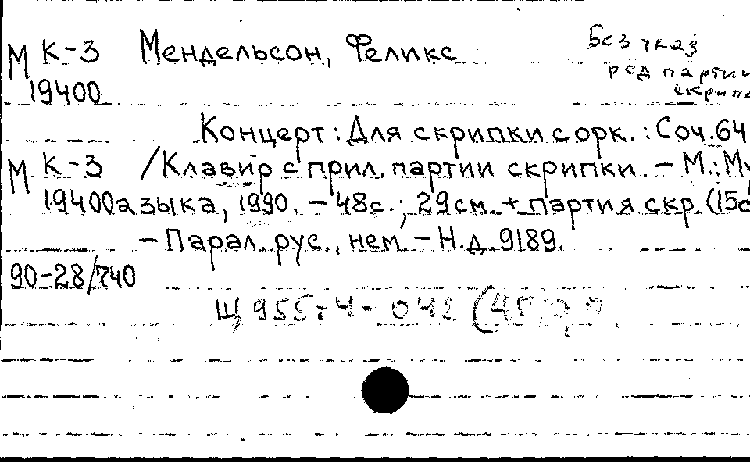 М К-3 Мендельсон, Феликс
19400
Без указ
ред партии
скрипк
Концерт: Для скрипки с орк.: Соч. 64
М К-3 /Клавир с прил. партии скрипки. – М.: Му
19400 азыка, 1990. – 48с.; 29см. + партия скр. (15с
– Парал. рус., нем. – Н.д. 9189.
90-28/740
Щ 955-4-042